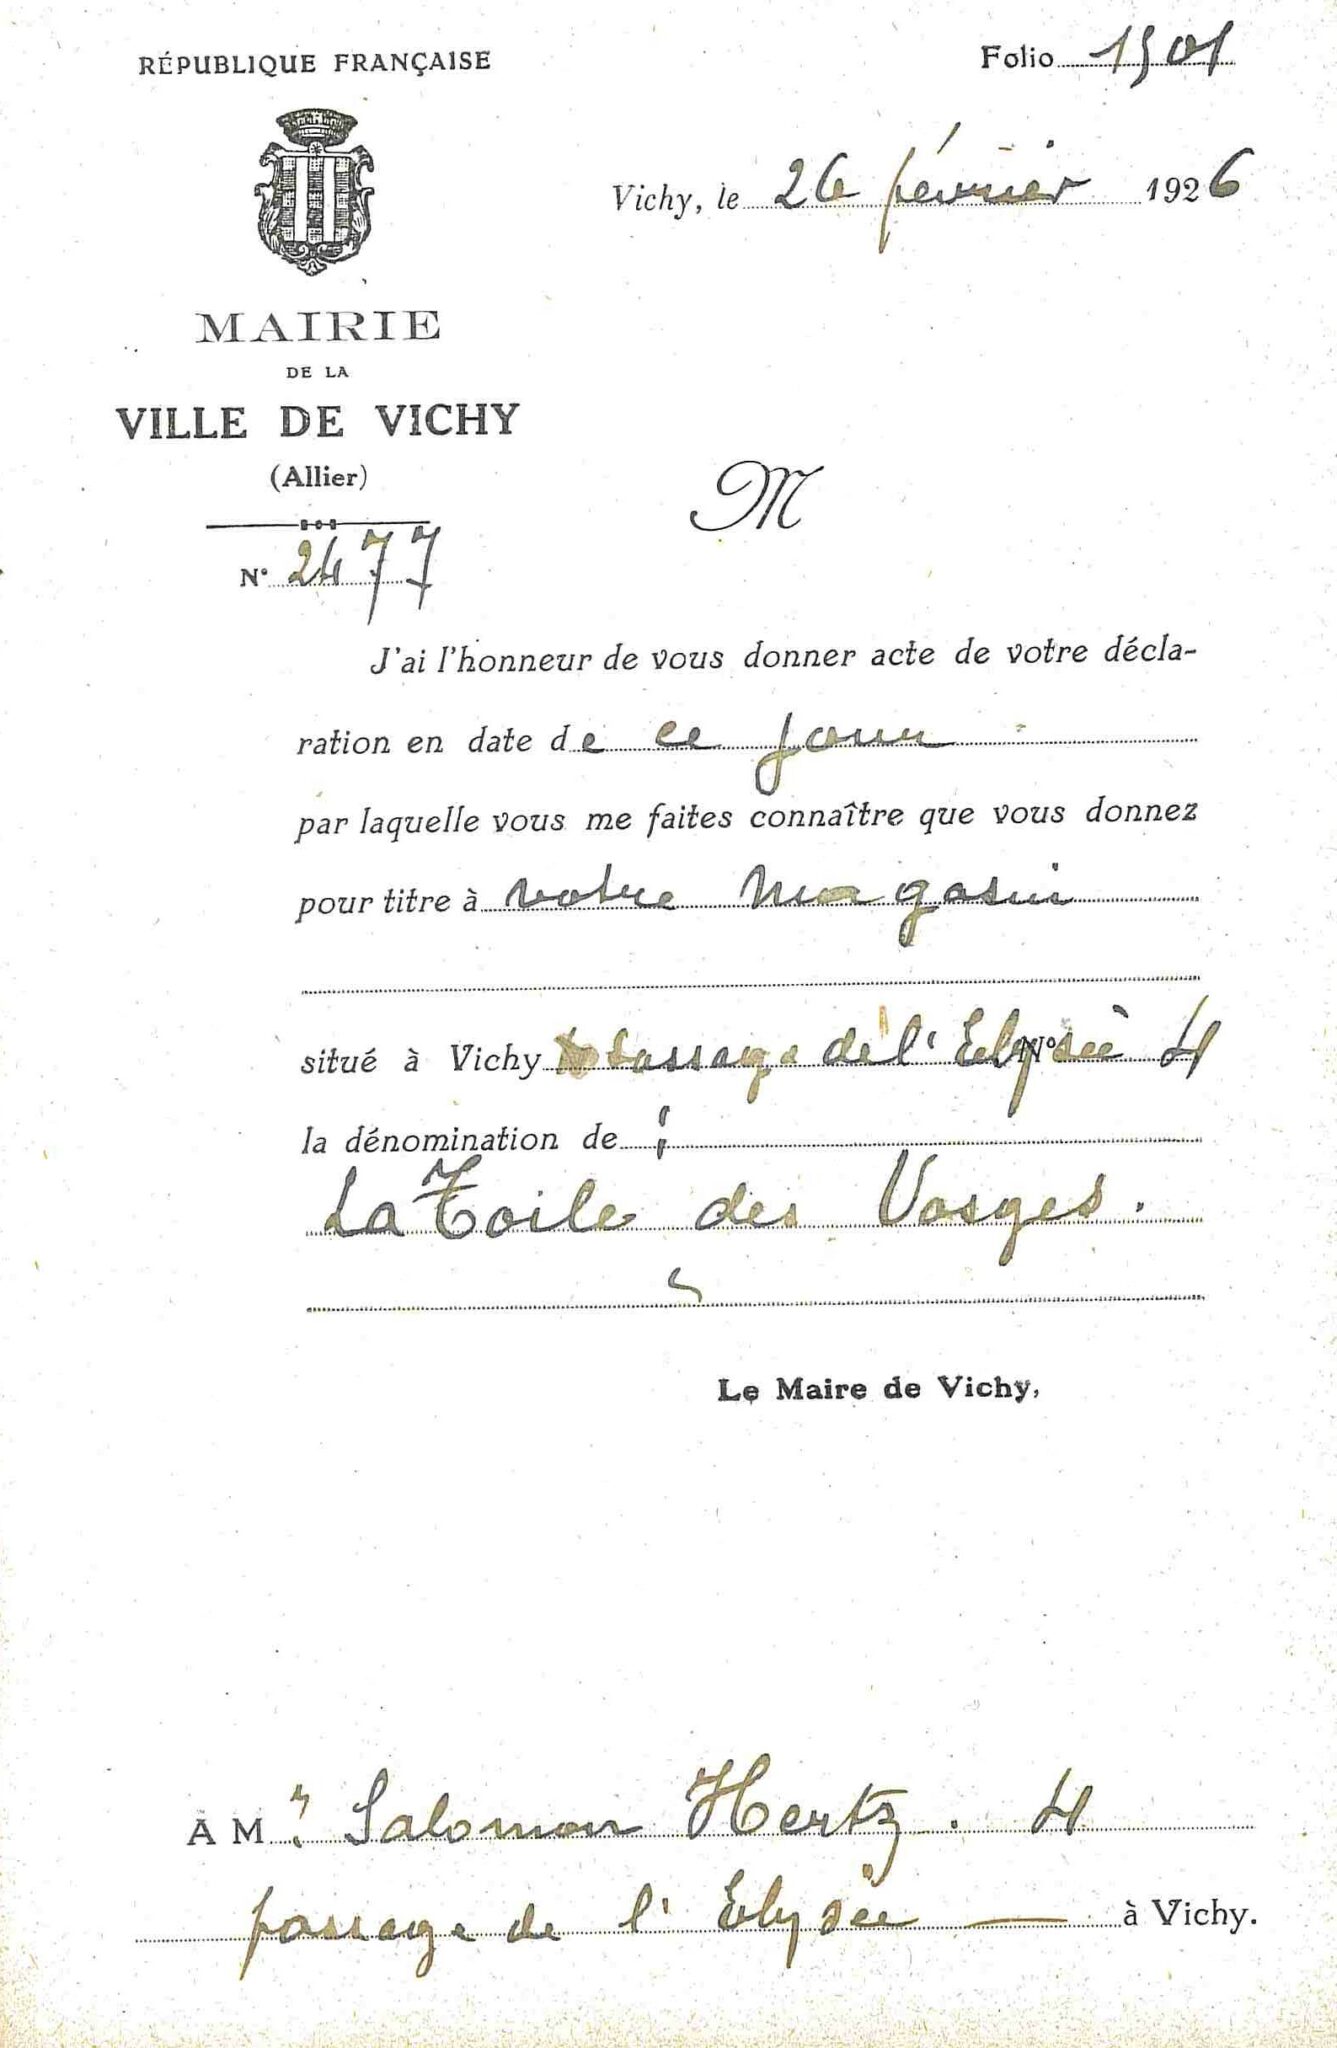 RÉPUBLIQUE FRANÇAISE
Folio 1501
Vichy, le 26 février 1926
MAIRIE
DE LA
VILLE DE VICHY
(Allier)
N° 2477
M
J'ai l'honneur de vous donner acte de votre décla-
ration en date de ce jour
par laquelle vous me faites connaître que vous donnez
pour titre à votre magasin
situé à Vichy passage de l'Elysée N° 4
la dénomination de :
La Toile des Vosges.
Le Maire de Vichy,
A Mr Salomon Hertz. 4
passage de l'Elysée — à Vichy.